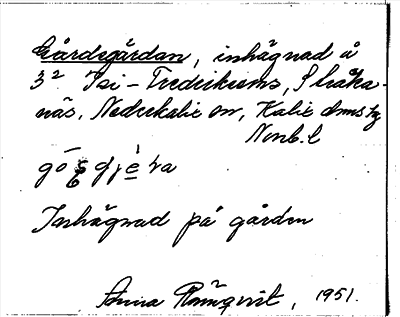 Gårdsgården, inhägnad å
3² Isi-Fredriksens, Stråka-
näs, Nederkalix on, Kalix dmstg
Norrb. l
Inhägnad på gården
Anna Rönnqvist, 1951.